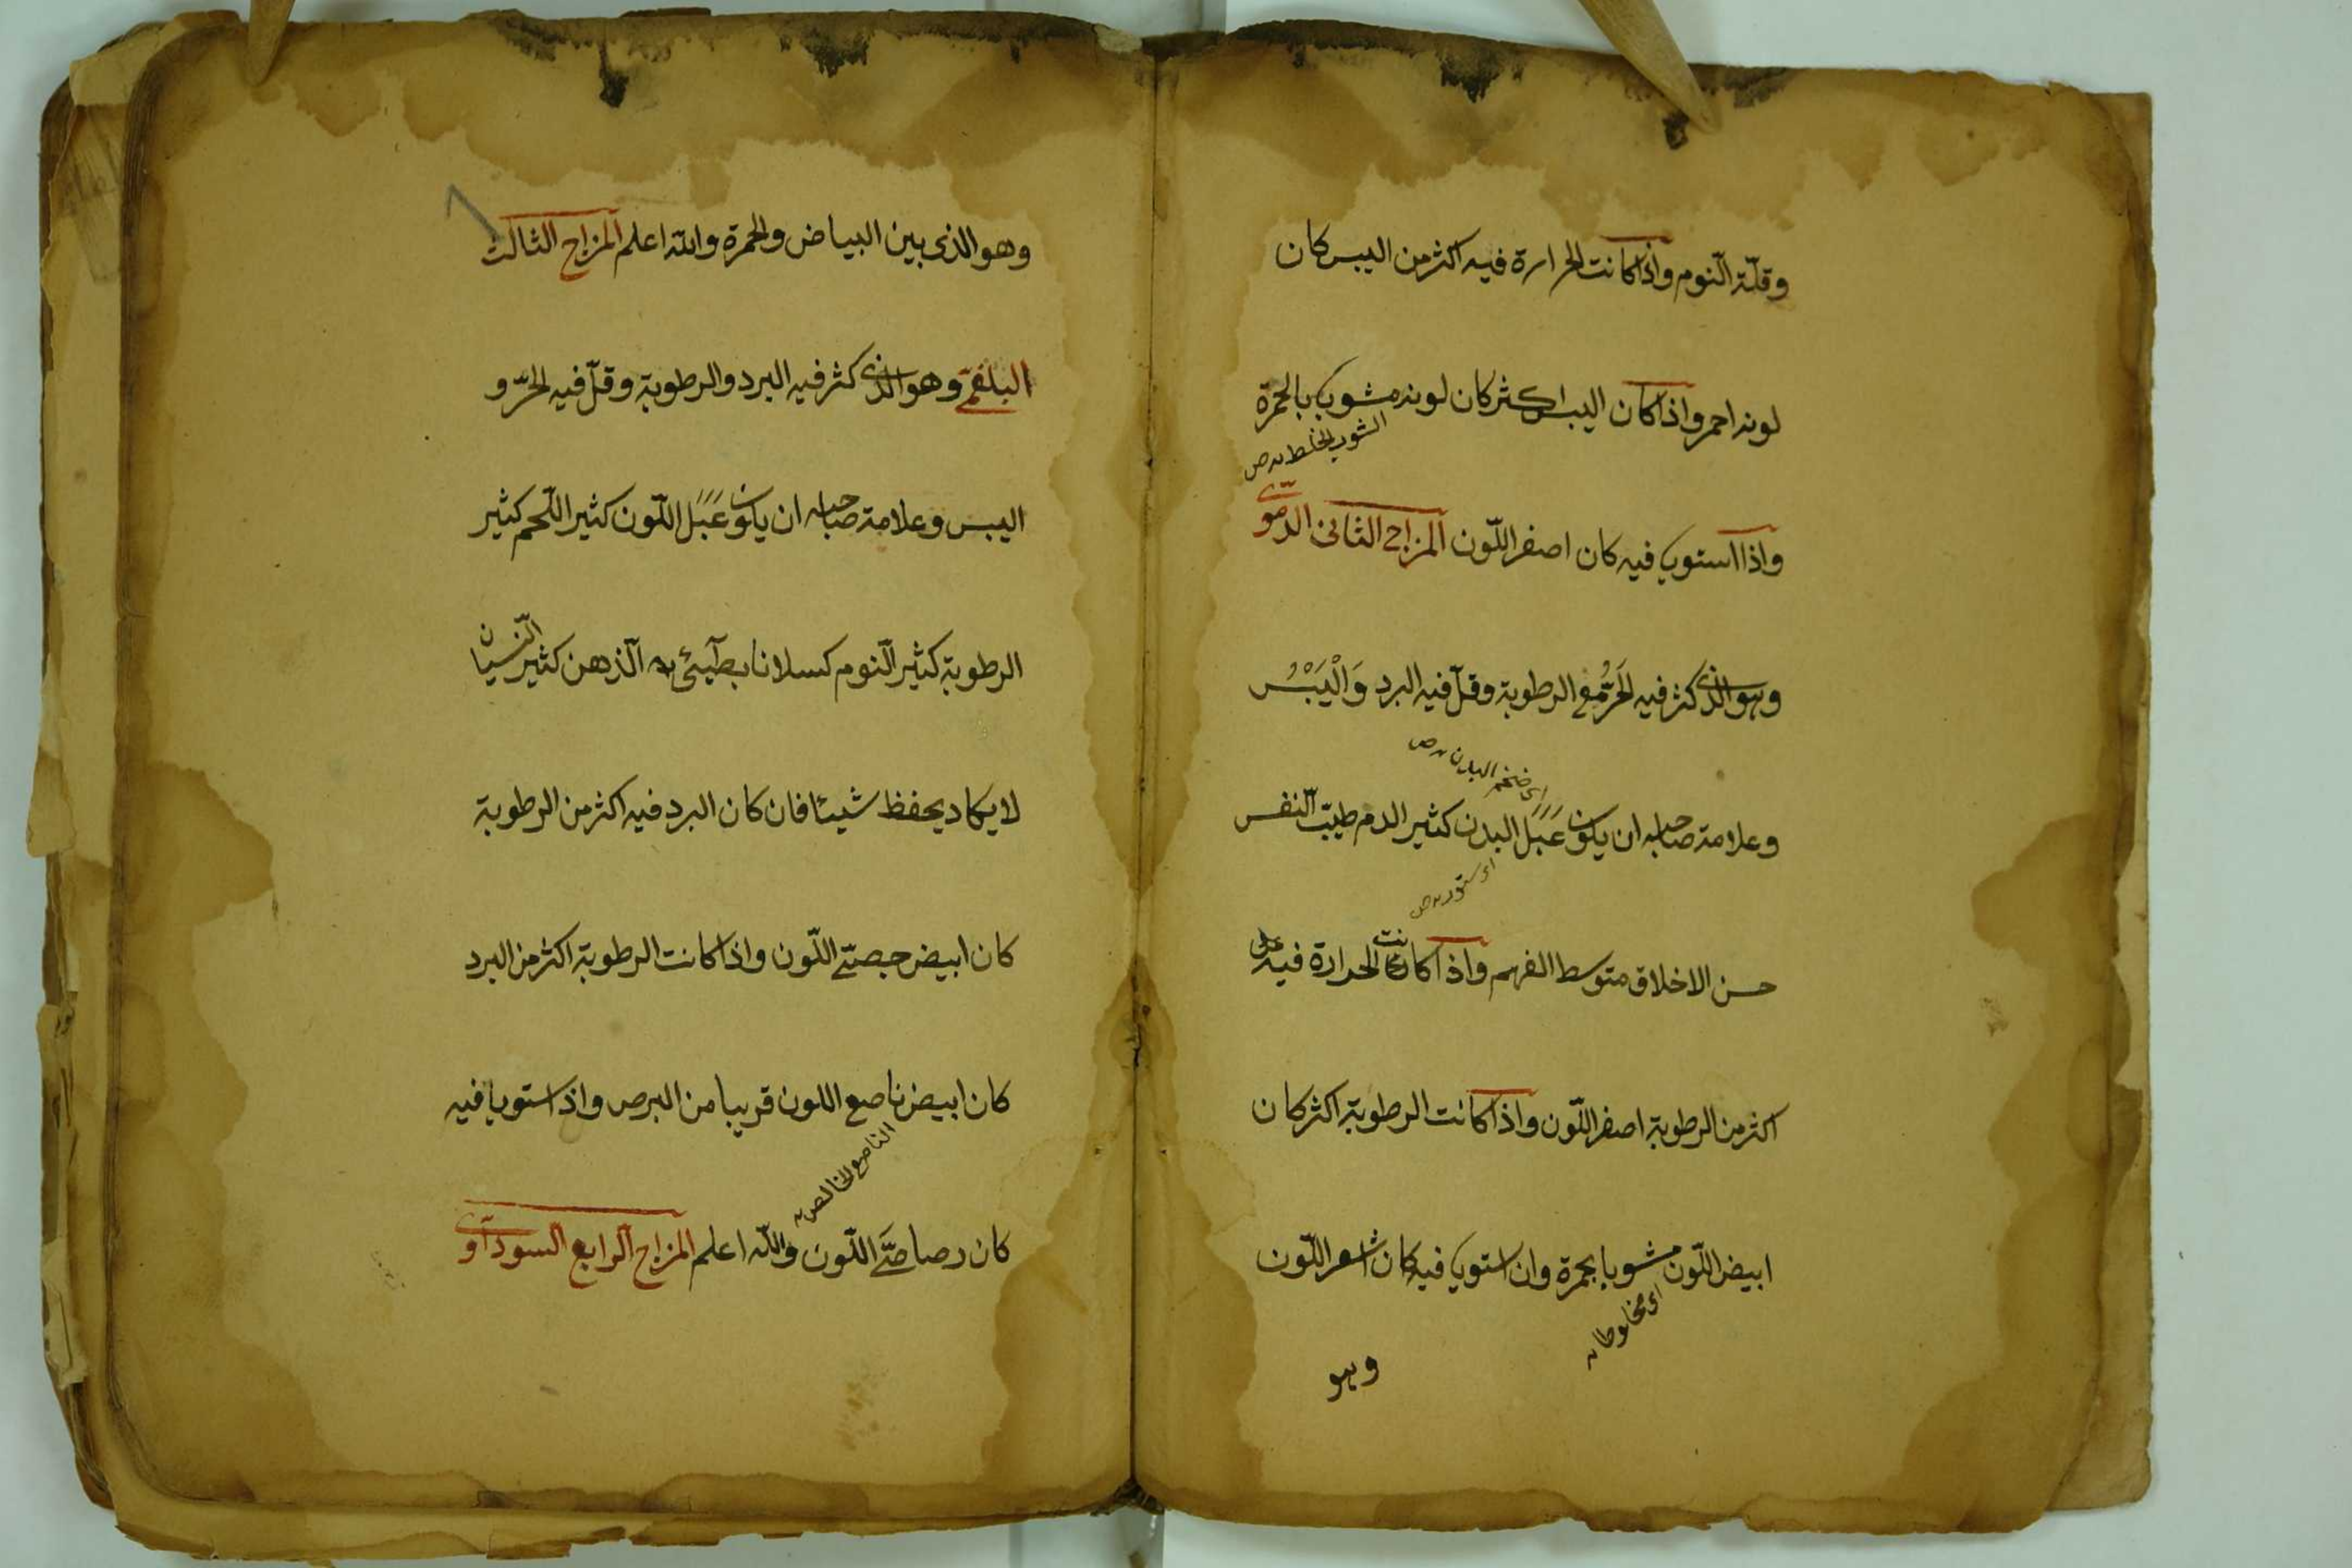 وقلّة النّوم واذا كانت الحرارة فيه اكثر من اليبس كان
لونه احمر واذا كان اليبس اكثر كان لونه مشوب بالحمرة
واذا استويا فيه كان اصفر اللّون المزاج الثانى الدّموّى
وهو الذى كثر فيه الحَرُّ مع الرطوبة وقلّ فيه البرد وَالْيَبْسُ
اى ضخم البدن
وعلامة صاحبه ان يكون عَبَل البدن كثير الدم طيّب النفس
حسن الاخلاق متوسط الفهم واذا كانت الحرارة فيه
اكثر من الرطوبة اصفر اللّون واذا كانت الرطوبة اكثر كان
ابيض اللّون مشوبا بحمرة وان استويا فيه كان اشعر اللّون
اى مخلوطا
وهو
وهو الذى بين البياض والحمرة والله اعلم المزاج الثالث
البلغمّى وهو الذى كثر فيه البرد والرطوبة وقلّ فيه الحرّ و
اليبس وعلامة صاحبه ان يكون عَبَل اللّون كثير اللّحم كثير
الرطوبة كثير النّوم كسلانا بطيئ الذهن كثير النّسيان
لا يكاد يحفظ شيئا فان كان البرد فيه اكثر من الرطوبة
كان ابيض جصّى اللّون واذا كانت الرطوبة اكثر من البرد
كان ابيض ناصع اللون قريبا من البرص واذا استويا فيه
الناصع الخالص
كان رصاصّى اللّون والله اعلم المزاج الرابع السودآوى